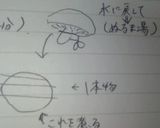 分)
水に戻して
(ぬるま湯)
←1本物
これを煮る